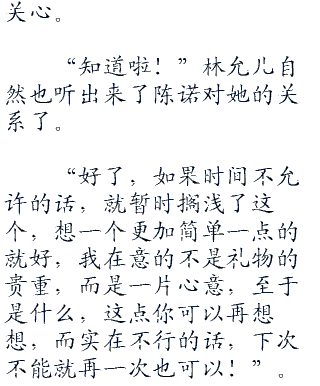 关心。
“知道啦！”林允儿自
然也听出来了陈诺对她的关
系了。
“好了，如果时间不允
许的话，就暂时搁浅了这
个，想一个更加简单一点的
就好，我在意的不是礼物的
贵重，而是一片心意，至于
是什么，这点你可以再想
想，而实在不行的话，下次
不能就再一次也可以！”。